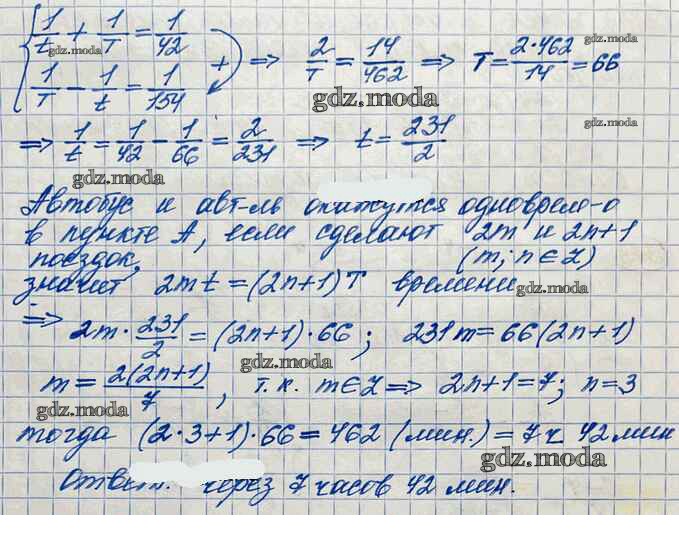 { 1/t + 1/T = 1/42
gdz.moda
1/T - 1/t = 1/154 + => 2/T = 14/462 => T = 2·462/14 = 66
gdz.moda
gdz.moda
=> 1/t = 1/42 - 1/66 = 2/231 => t = 231/2
gdz.moda
gdz.moda
Автобус и авт-ль окажутся одноврем-о
в пункте А, если сделают 2m и 2n+1
поездок, (m; n ∈ Z)
значит 2mt = (2n+1)T времени
gdz.moda
=> 2m · 231/2 = (2n+1)·66; 231m = 66(2n+1)
gdz.moda
m = 2(2n+1)/7, т.к. m ∈ Z => 2n+1=7; n=3
gdz.moda
тогда (2·3+1)·66 = 462 (мин.) = 7 ч 42 мин
gdz.moda
Ответ: через 7 часов 42 мин.